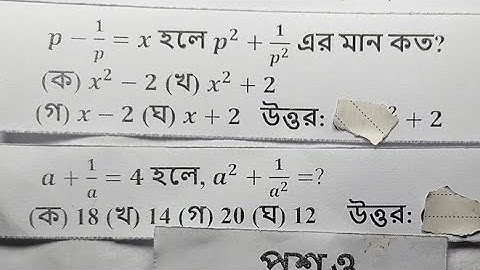 p − 1/p = x হলে p² + 1/p² এর মান কত?
(ক) x² − 2 (খ) x² + 2
(গ) x − 2 (ঘ) x + 2 উত্তর: ² + 2
a + 1/a = 4 হলে, a² + 1/a² =?
(ক) 18 (খ) 14 (গ) 20 (ঘ) 12 উত্তর: (